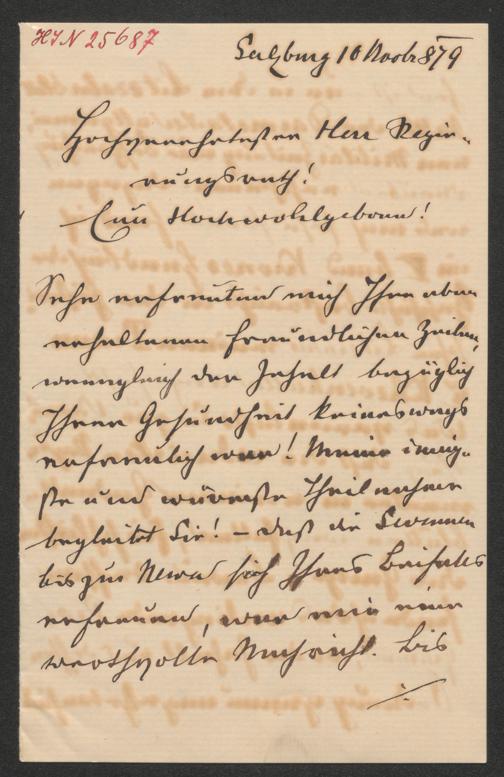 HIN 25687
Salzburg 10 Novbr 879
Hochverehrtester Herr Regie-
rungsrath!
Euer Hochwohlgeboren!
Sehr erfreuten mich Ihre eben
erhaltenen freundlichen Zeilen,
wenngleich der Inhalt bezüglich
Ihrer Gesundheit keineswegs
erfreulich war! Meine innig-
ste und wärmste Theilnahme
begleitet Sie! – daß die
bis zur Newa sich Ihres Beifalles
erfreuen, war mir eine
werthvolle Nachricht. Bis